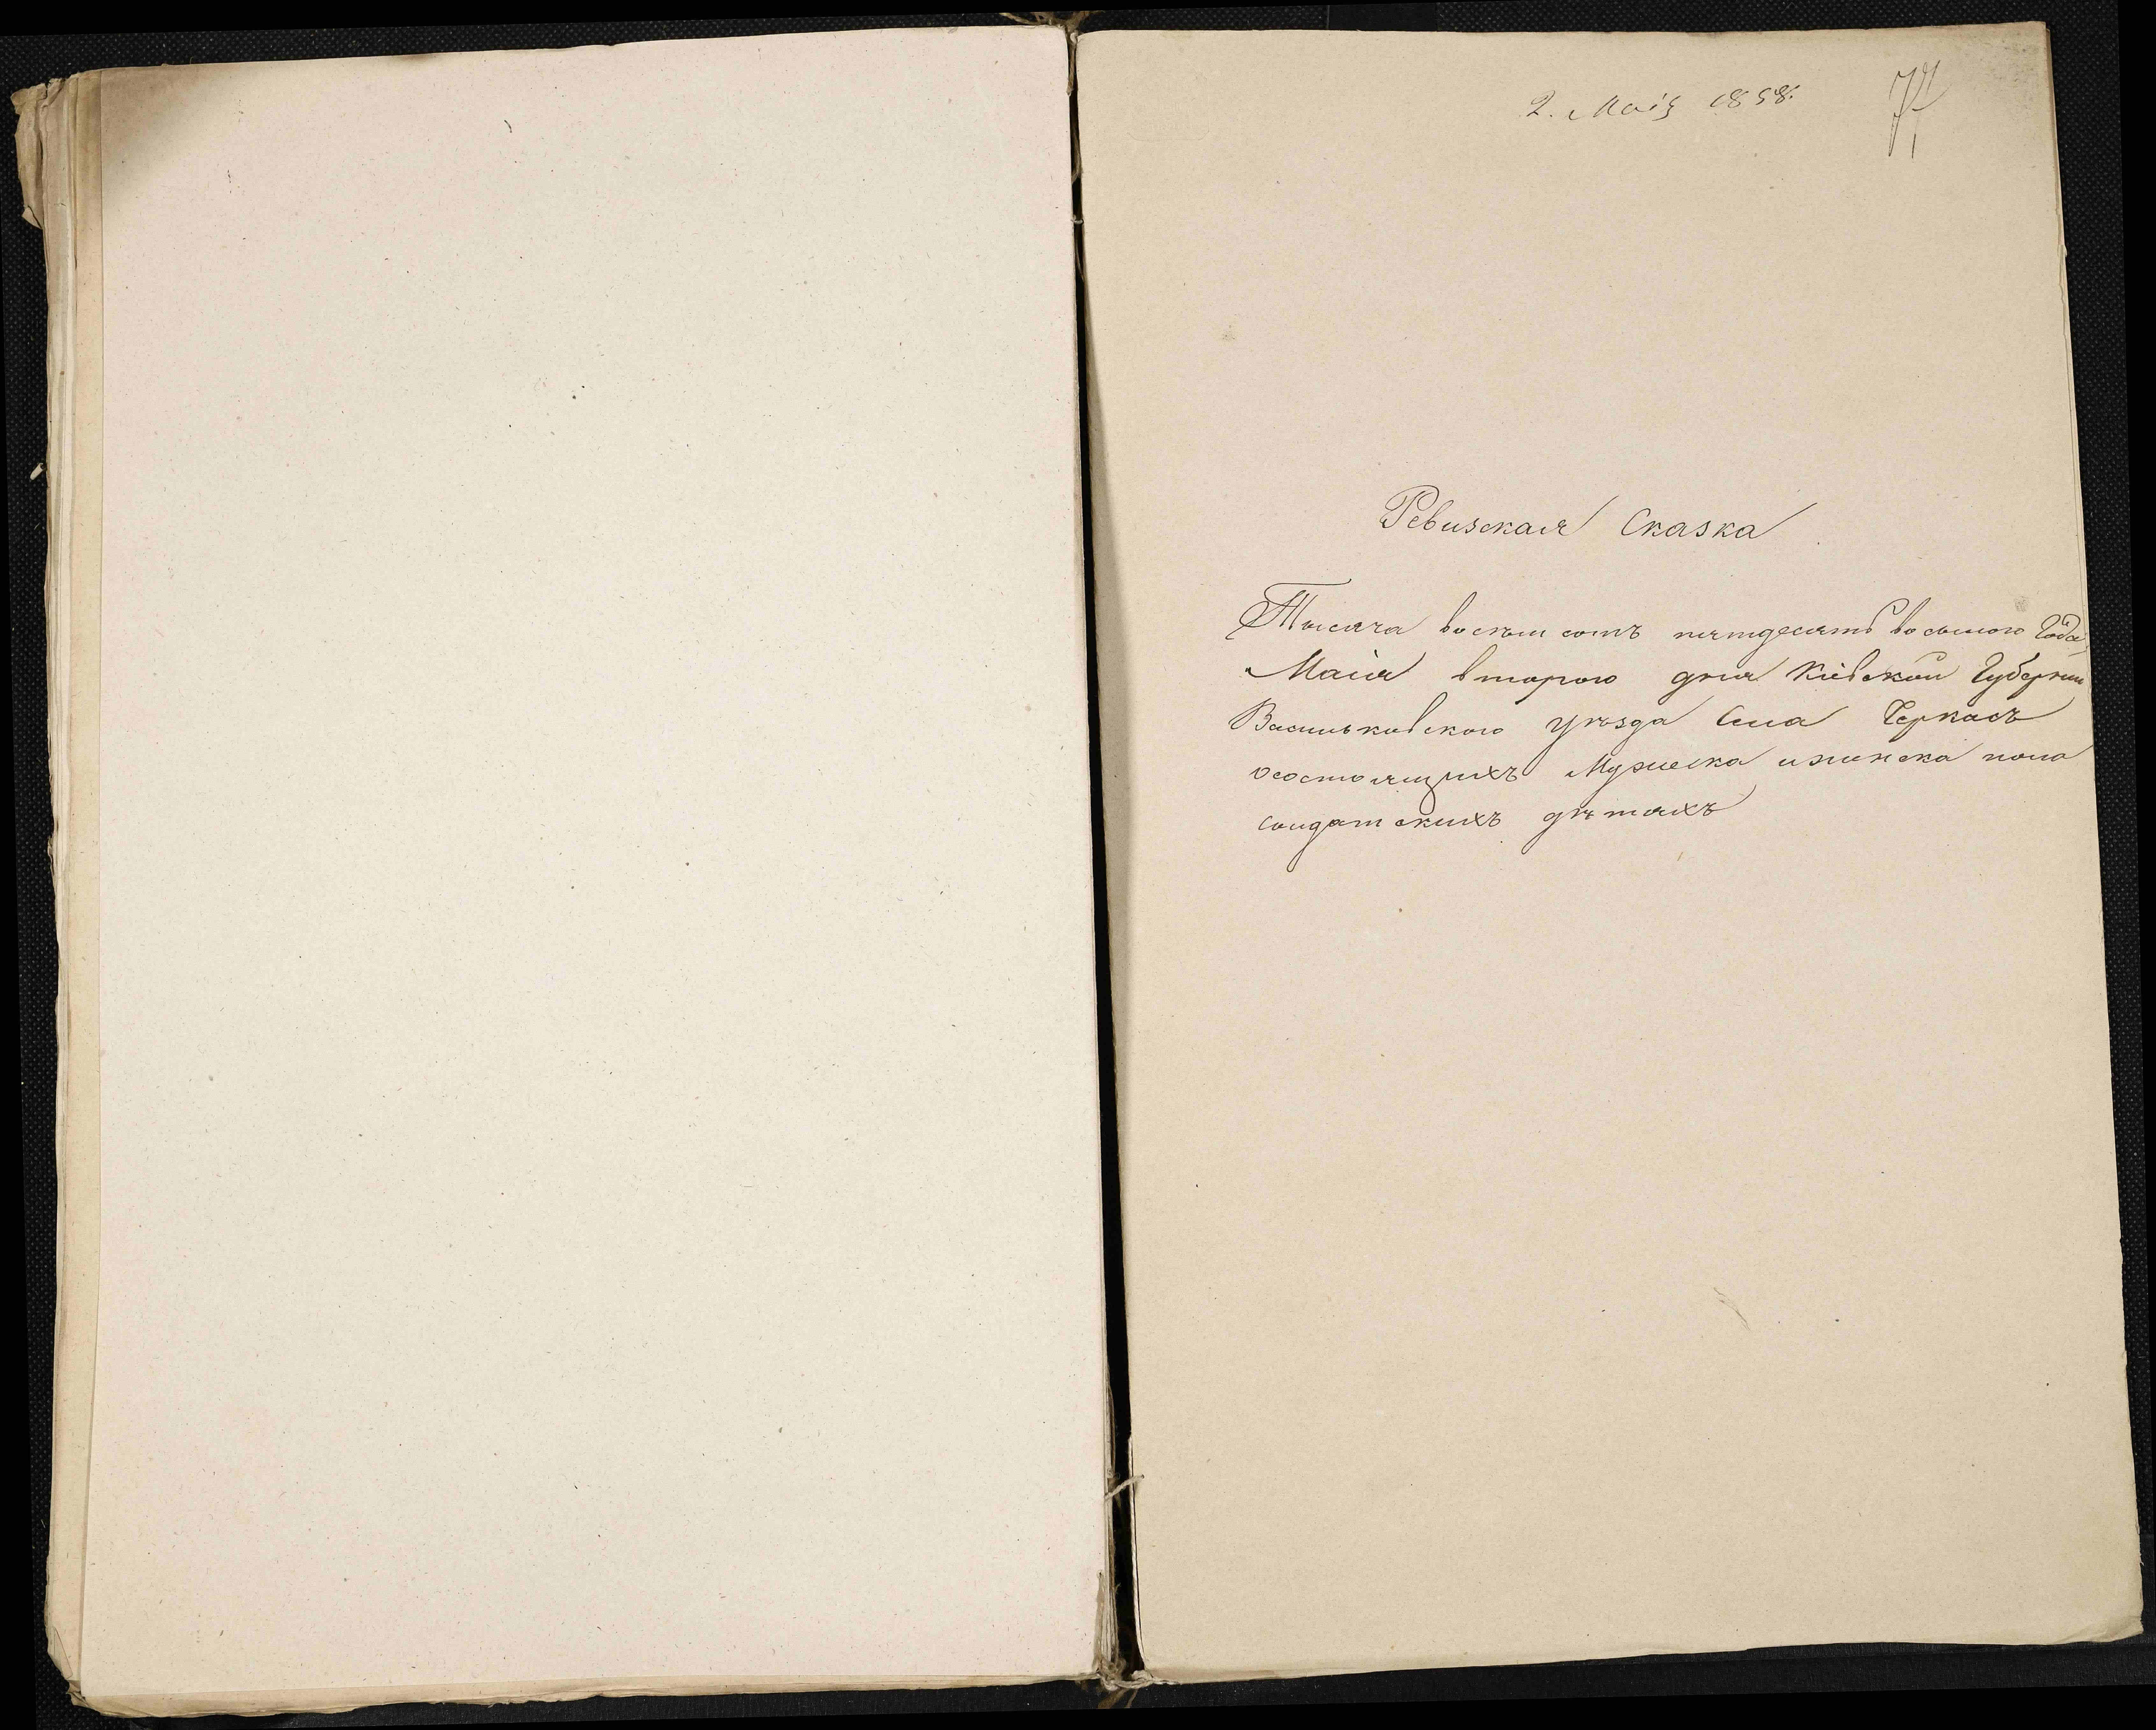 2. Маія 1858.
77
Ревизская Сказка
Тысяча восемь сотъ пятдесятъ восьмого Года,
Маія второго дня Кіевской Губерніи
Васильковского уѣзда Села Черкасъ
осостоящихъ Мужеска иженска пола
солдатскихъ дѣтяхъ